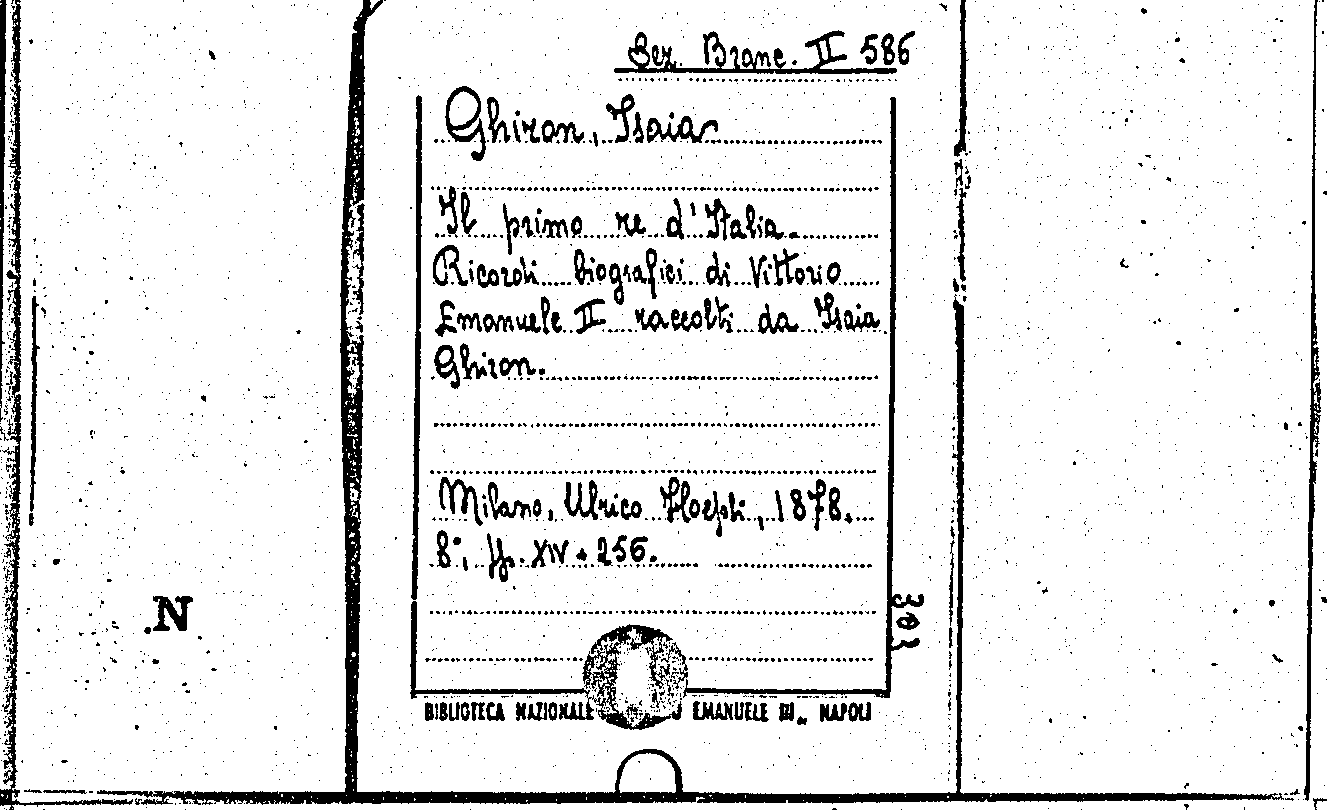 Sez. Branc. II 586
Ghiron, Isaia
Il primo re d'Italia.
Ricordi biografici di Vittorio
Emanuele II raccolti da Isaia
Ghiron.
Milano, Ulrico Hoepli, 1878.
8°, pp. XIV + 256.
N
303
BIBLIOTECA NAZIONALE EMANUELE III„ NAPOLI